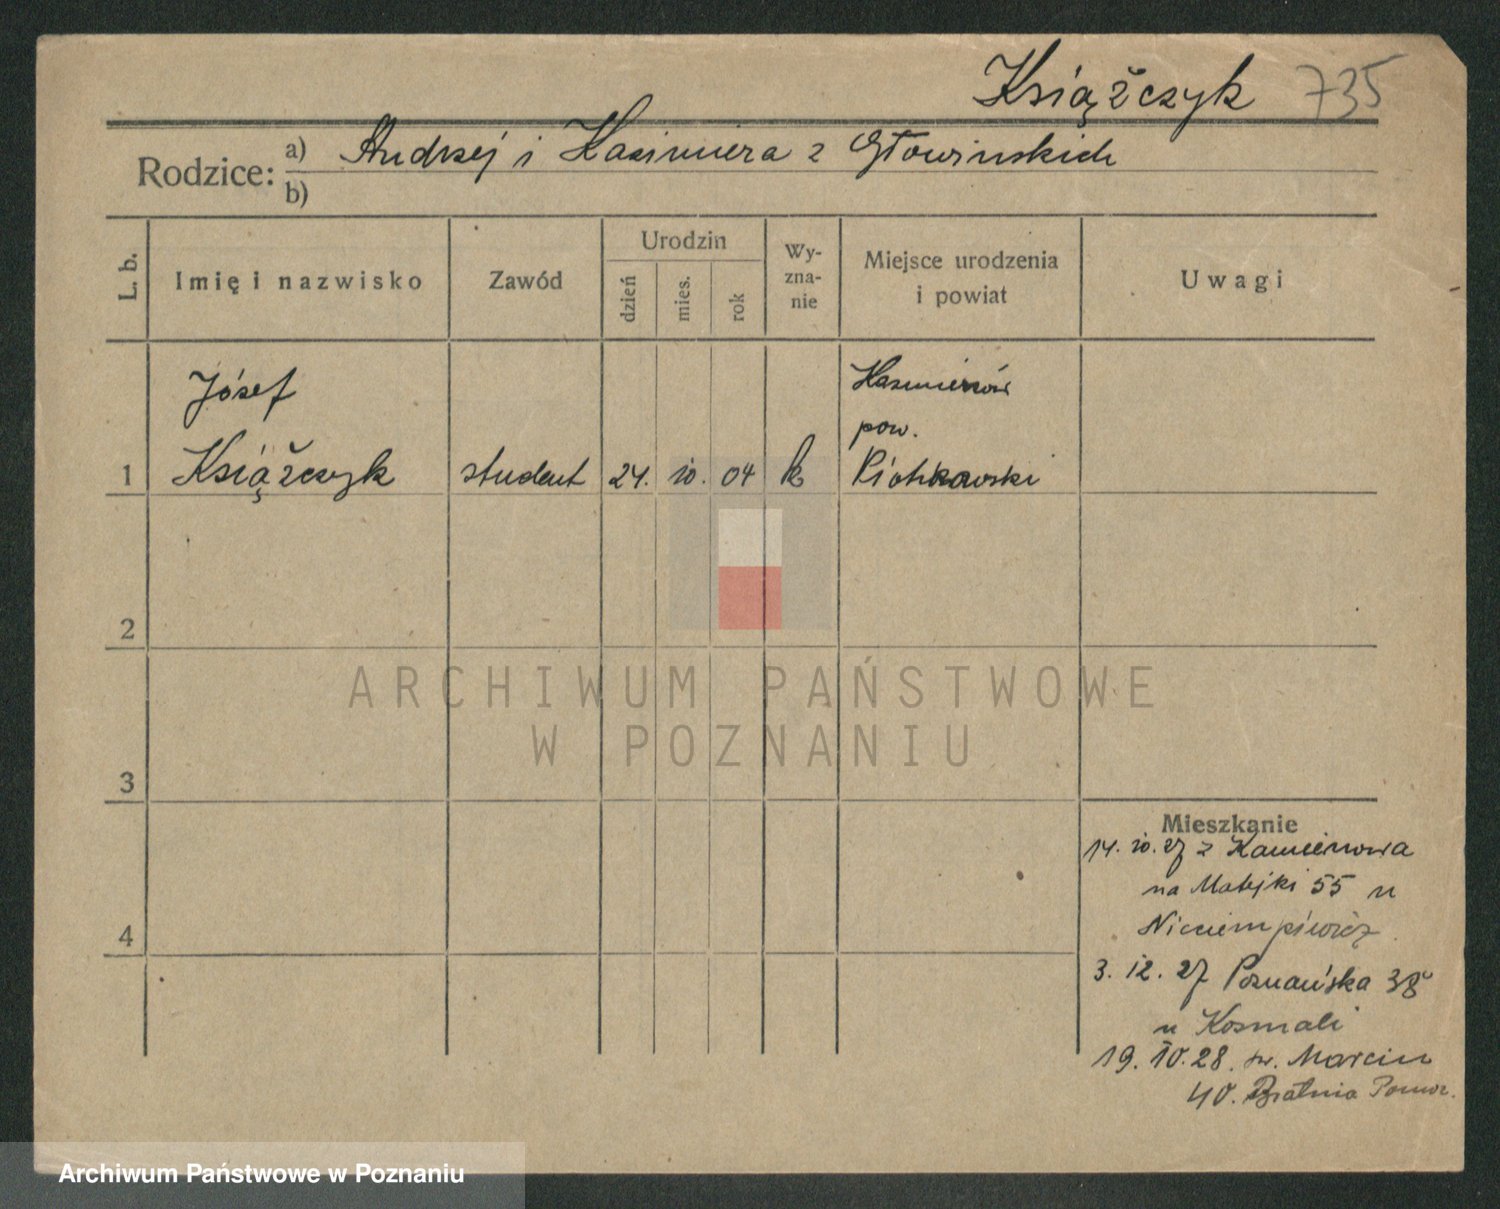 Książczyk 735
Rodzice: a) Andrzej i Kazimiera z Głowińskich
b)
L. b.
Imię i nazwisko
Zawód
Urodzin
dzień
mies.
rok
Wy-
zna-
nie
Miejsce urodzenia
i powiat
Uwagi
Józef
Kazimierzów
pow.
1 Książczyk student 24. 10. 04 k Piotrkowski
2
ARCHIWUM PAŃSTWOWE
W POZNANIU
3
Mieszkanie
14. 10. 27 z
na Matejki 55 u
4
3. 12. 27 Poznańska 38
u Kosmali
19. 10. 28. św. Marcin
40. Bratnia Pomoc.
Archiwum Państwowe w Poznaniu